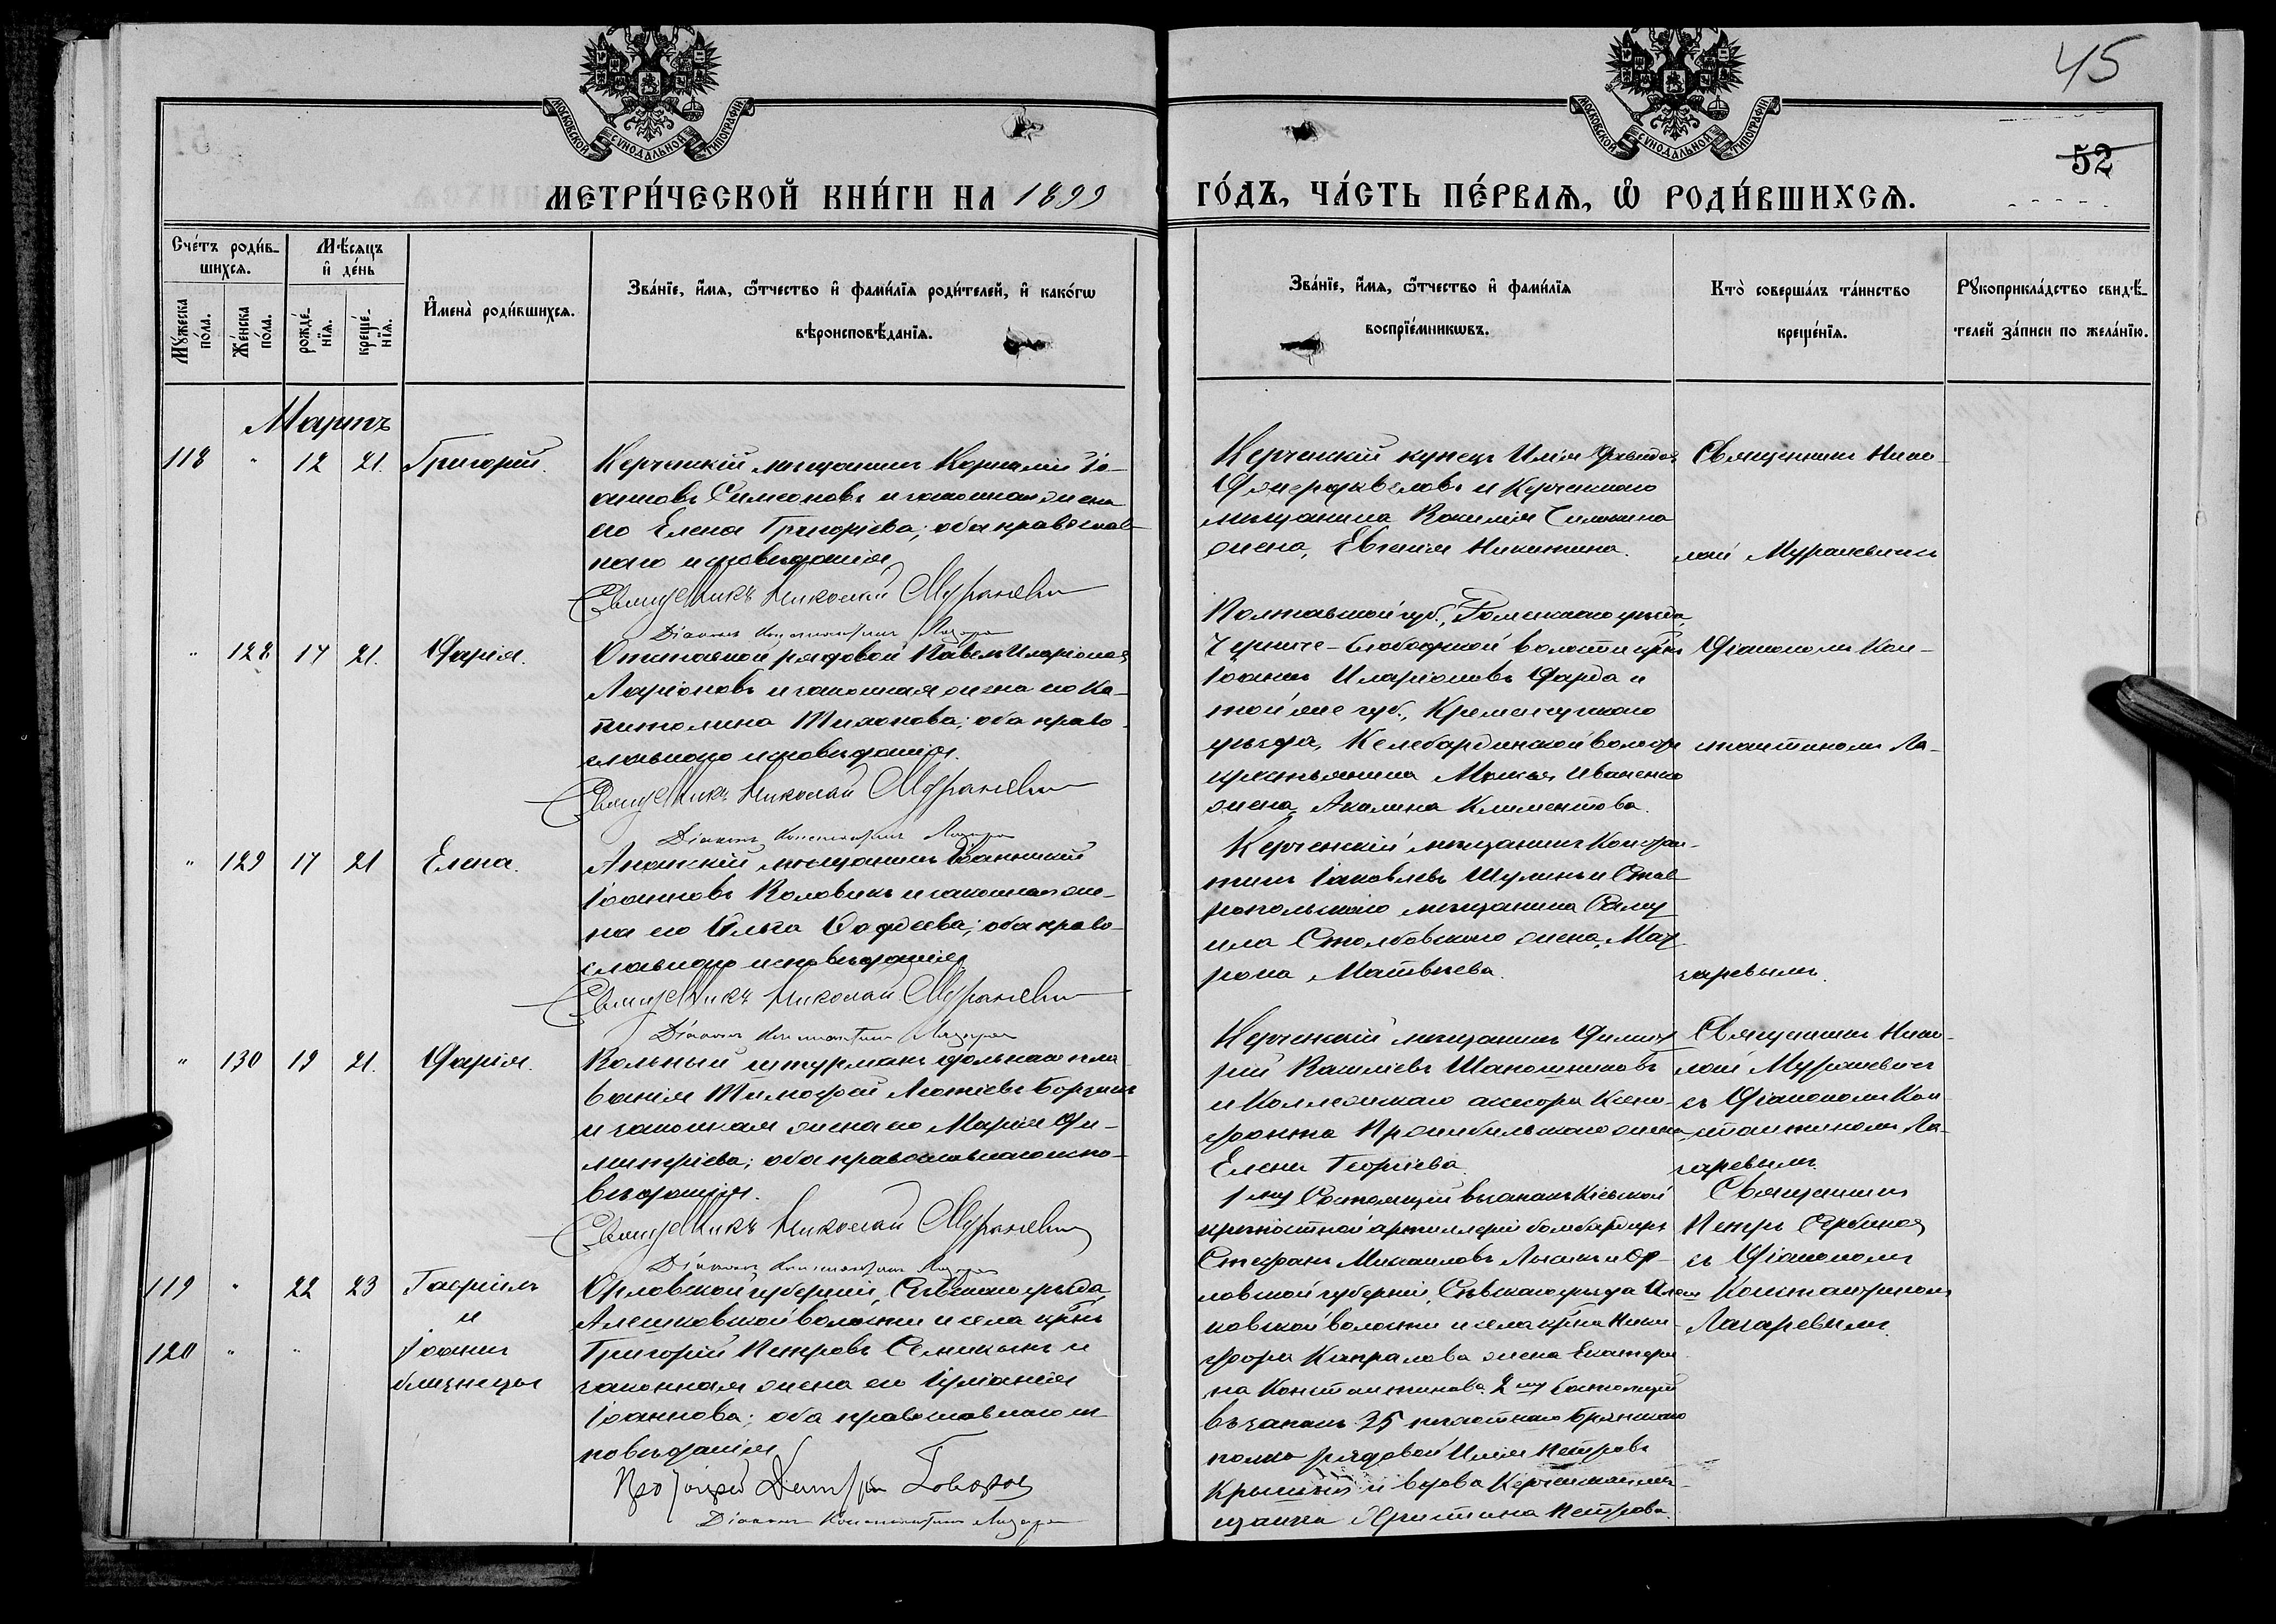 45
52
МОСКОВСКОЙ СУНОДАЛЬНОЙ ТИПОГРАФІИ
МОСКОВСКОЙ СУНОДАЛЬНОЙ ТИПОГРАФІИ
МЕТРИ́ЧЕСКОЙ КНИ́ГИ НА 1899
ГО́ДЪ, ЧА́СТЬ ПЕ́РВАѦ, Ѡ҆ РОДИ́ВШИХСѦ.
Сче́тъ роди́в-
шихсѧ.
Мѣ́сѧцъ
и҆ де́нь
Мꙋ́жеска
по́ла.
Же́нска
по́ла.
рожде́-
нїѧ.
креще́-
нїѧ.
И҆мена̀ роди́вшихсѧ.
Зва́нїе, и҆́мѧ, ѻ҆́тчество и҆ фами́лїѧ роди́телей, и҆ како́гѡ
вѣроисповѣ́данїѧ.
Зва́нїе, и҆́мѧ, ѻ҆́тчество и҆ фами́лїѧ
воспрїе́мникѡвъ.
Кто̀ соверша́лъ та́инство
креще́нїѧ.
Рꙋкоприкла́дство свидѣ́-
телей за́писи по жела́нїю.
Мартъ
118 " 12 21. Григорій.
Керченскій мѣщанинъ Корнилій Іо-
анновъ Симеоновъ и законная жена
его Елена Григоріева; оба православ-
наго исповѣданія
Священникъ Николай Мураневич
Діаконъ Константинъ Лазарев
Керченскій купецъ Илія
и Керченскаго
мѣщанина Василія
жена, Евгенія Никитина.
Священникъ Нико-
лай Мураневичъ
" 128 17 21. Дарія.
Запасной рядовой Павелъ Иларіоновъ
Ларіоновъ и законная жена его Ка-
питолина Тихонова; оба право-
славнаго исповѣданія.
Священникъ Николай Мураневич
Діаконъ Константинъ Лазарев
Полтавской губ., Роменскаго уѣзда,
-слободской волости крн.
Іоаннъ Иларіоновъ и
той же губ., Кременчугскаго
уѣзда, Келебердинской волости
крестьянина Моисея Иваненко
жена, Акилина Климентова.
Діакономъ Кон-
стантиномъ Ла-
" 129 17 21 Елена.
Анапскій мѣщанинъ Іоанникій
Іоанновъ Воловикъ и законная же-
на его Ольга Фаддеева; оба право-
славнаго исповѣданія
Священникъ Николай Мураневич
Діаконъ Константинъ Лазарев
Керченскій мѣщанинъ Констан-
тинъ Іаковлевъ Шулинъ и Став-
ропольскаго мѣщанина Саму
ила Столбовскаго жена, Мат
рона Матвѣева.
заревымъ.
" 130 19 21. Дарія.
Вольный штурманъ дальняго пла
ванія Тимофей Леонтіевъ
и законная жена его Марія Ди-
митріева; оба православнаго испо-
вѣданія.
Священникъ Николай Мураневич
Діаконъ Константинъ Лазарев
Керченскій мѣщанинъ Димит
рій Василіевъ Шапошниковъ
и Коллежскаго асесора Ксено-
фонта жена
Елена Георгіева.
Священникъ Нико-
лай Мураневичъ
съ Діакономъ Кон
стантиномъ Ла-
заревымъ.
119 " 22 23 Гавріилъ
и
120 " " Іоаннъ
близнецы
Орловской губерніи, Сѣвскаго уѣзда,
Алешковской волости и села крнъ
Григорій Петровъ Семикинъ и
законная жена его Іуліанія
Іоаннова; оба православнаго ис
повѣданія
Протоіерей Димитрій
Діаконъ Константинъ Лазарев
1му Состоящій въ запасѣ Кіевской
крѣпостной артиллеріи бомбардиръ
Стефанъ Михаиловъ и Ор-
ловской губерніи, Сѣвскаго уѣзда Алеш
ковской волости и села крна Ники-
фора Капралова жена Екатери
на Константинова. 2му Состоящій
въ запасѣ 35 пѣхотнаго Брянскаго
полка рядовой Илія Петровъ
и вдова Керченская мѣ-
щанка Христина Петрова.
Священникъ
Петръ Сербиновъ
съ Діакономъ
Константиномъ
Лазаревымъ.